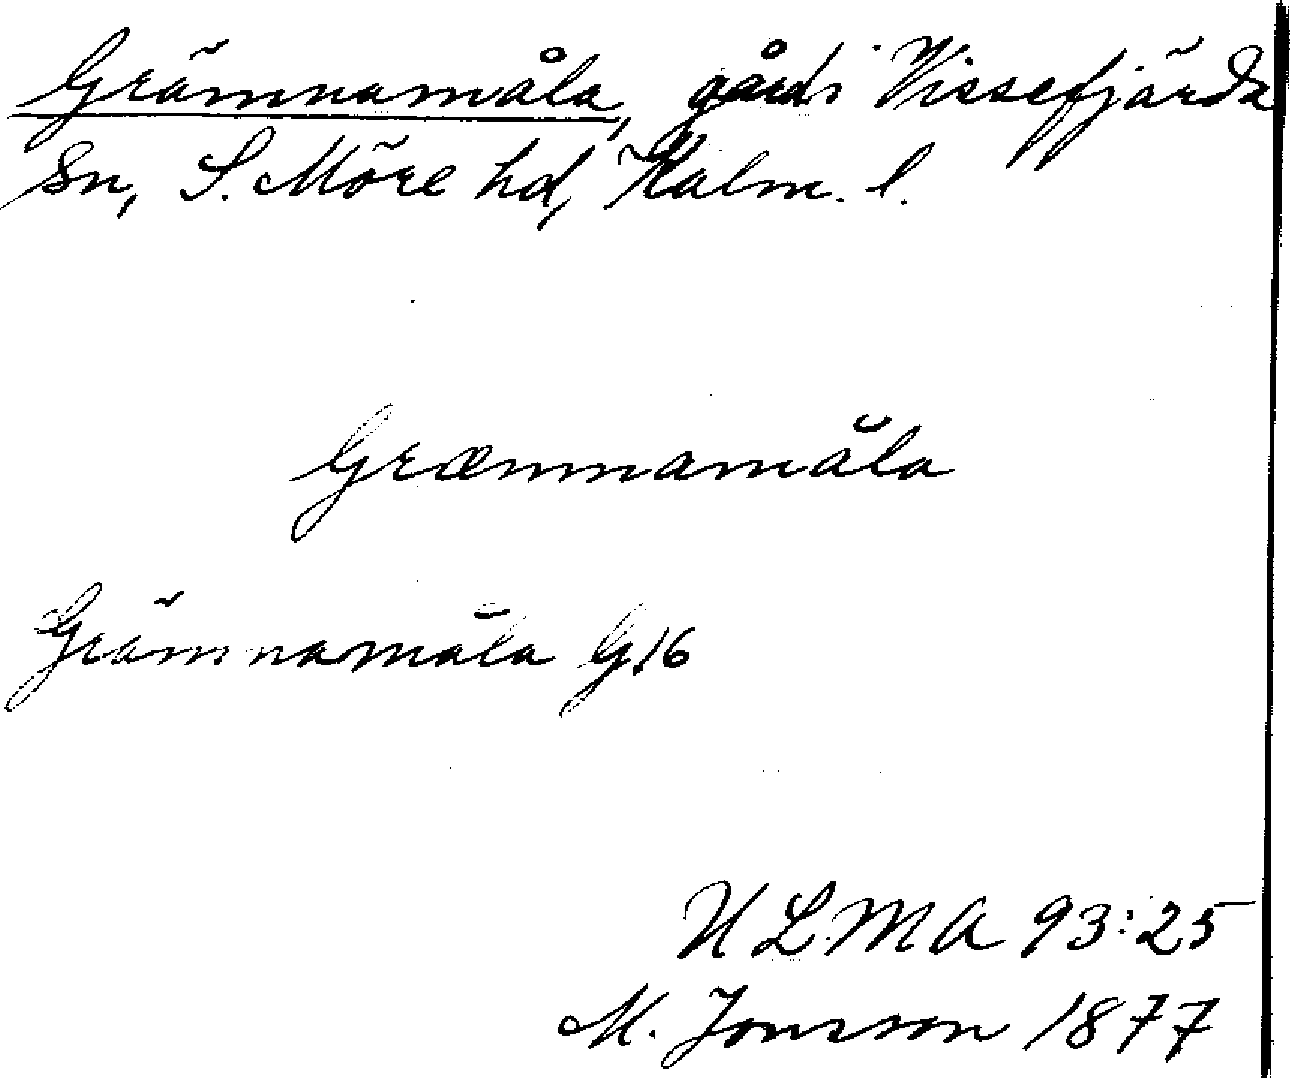 Grämnamåla, gård i Vissefjärda
Sn, S. Möre hd, Kalm. l.
Græmnamåla
Grämnamåla G16
ULMA 93:25
M. Jonsson 1877